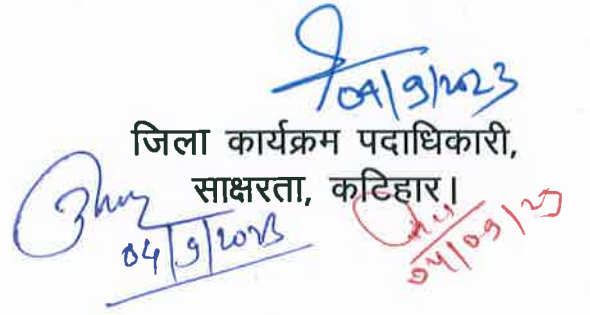 04/9/2023
जिला कार्यक्रम पदाधिकारी,
साक्षरता, कटिहार।
04/9/2023
04/09/23